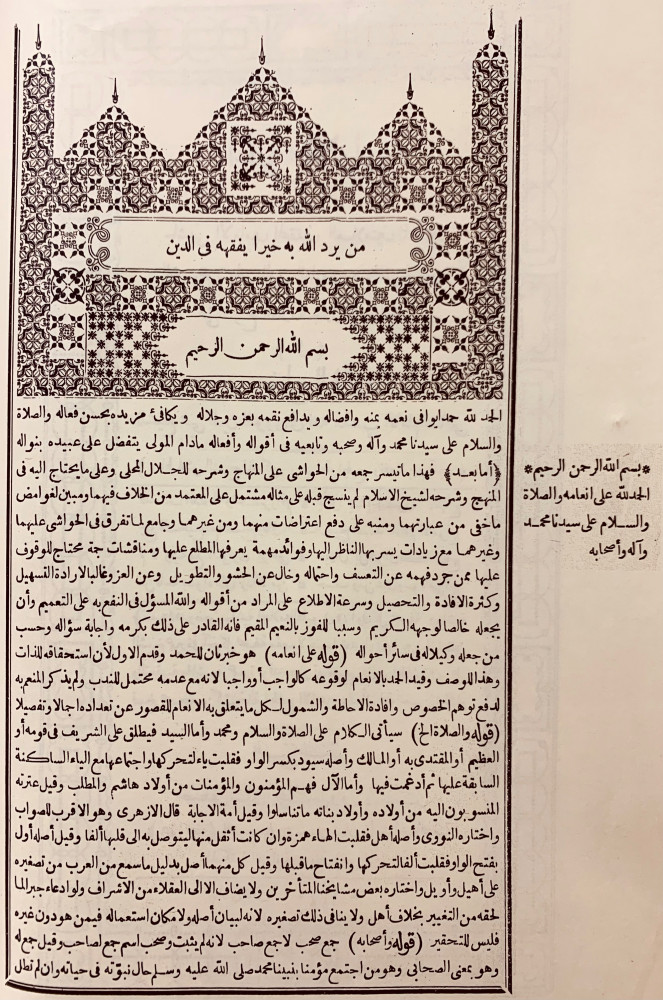 من يرد الله به خيرا يفقهه فى الدين
بسم الله الرحمن الرحيم
الحمد لله حمدا يوافى نعمه بمنه وافضاله ويدافع نقمه بعزه وجلاله ويكافئ مزيده بحسن فعاله والصلاة
والسلام على سيدنا محمد وآله وصحبه وتابعيه فى أقواله وأفعاله مادام المولى يتفضل على عبيده بنواله
(أما بعد) فهذا ما تيسر جمعه من الحواشى على المنهاج وشرحه للجلال المحلى وعلى ما يحتاج اليه فى
المنهج وشرحه لشيخ الاسلام لم ينسج قبله على مثاله مشتمل على المعتمد من الخلاف فيهما ومبين لغوامض
ما خفى من عبارتهما ومنبه على دفع اعتراضات منهما ومن غيرهما وجامع لما تفرق فى الحواشى عليهما
وغيرهما مع زيادات يسر بها الناظر اليها وفوائد مهمة يعرفها المطلع عليها ومناقشات جمة محتاج للوقوف
عليها ممن جرد فهمه عن التعسف واحتماله وخال عن الحشو والتطويل وعن العزو غالبا لارادة التسهيل
وكثرة الافادة والتحصيل وسرعة الاطلاع على المراد من أقواله والله المسؤل فى النفع به على التعميم وأن
يجعله خالصا لوجهه الكريم وسببا للفوز بالنعيم المقيم فانه القادر على ذلك بكرمه واجابة سؤاله وحسب
من جعله وكيلا له فى سائر أحواله (قوله على انعامه) هو خبر ثان للحمد وقدم الاول لأن استحقاقه للذات
وهذا للوصف وقيد الحمد بالانعام لوقوعه كالواجب أو واجبا لانه مع عدمه محتمل للندب ولم يذكر المنعم به
لدفع توهم الخصوص وافادة الاحاطة والشمول لكل ما يتعلق به الانعام للقصور عن تعداده اجمالا وتفصيلا
(قوله والصلاة الخ) سيأتى الكلام على الصلاة والسلام ومحمد وأما السيد فيطلق على الشريف فى قومه أو
العظيم أو المقتدى به أو المالك وأصله سيود بكسر الواو فقلبت ياء لتحركها واجتماعها مع الياء الساكنة
السابقة عليها ثم أدغمت فيها وأما الآل فهم المؤمنون والمؤمنات من أولاد هاشم والمطلب وقيل عترته
المنسوبون اليه من أولاده وأولاد بناته ما تناسلوا وقيل أمة الاجابة قال الازهرى وهو الاقرب للصواب
واختاره النووى وأصله أهل فقلبت الهاء همزة وان كانت أثقل منها ليتوصل به الى قلبها ألفا وقيل أصله أول
بفتح الواو فقلبت ألفا لتحركها وانفتاح ما قبلها وقيل كل منهما أصل بدليل ما سمع من العرب من تصغيره
على أهيل وأويل واختاره بعض مشايخنا المتأخرين ولا يضاف الا الى العقلاء من الاشراف ولو ادعاء جبرا لما
لحقه من التغيير بخلاف أهل ولا ينافى ذلك تصغيره لانه لبيان أصله ولا مكان استعماله فيمن هو دون غيره
فليس للتحقير (قوله وأصحابه) جمع صحب لا جمع صاحب لانه لم يثبت وصحب اسم جمع لصاحب وقيل جمع له
وهو بمعنى الصحابى وهو من اجتمع مؤمنا بنبينا محمد صلى الله عليه وسلم حال نبوته فى حياته وان لم تطل
*بسم الله الرحمن الرحيم*
الحمد لله على انعامه والصلاة
والسلام على سيدنا محمد
وآله وأصحابه